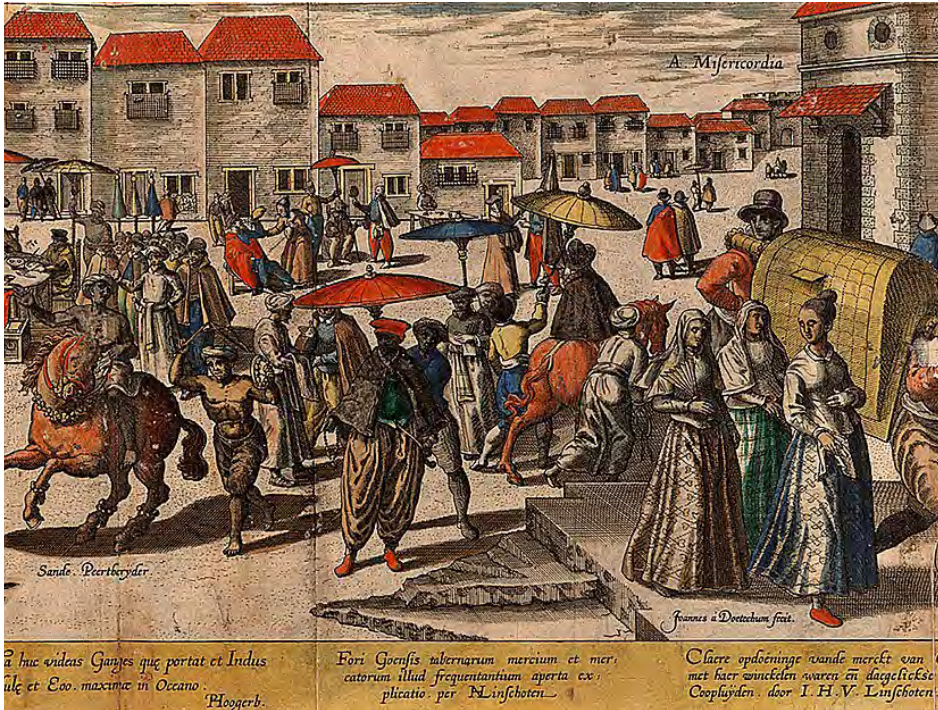 A. Misericordia
Sande. Peertberyder.
Joannes a Doetechum fecit.
huc videas Ganges quę portat et Indus
et Eoo. maximæ in Oceano.
Hoogerb.
Fori Goensis tabernarum mercium et mer,
catorum illud frequentantium aperta ex,
plicatio. per Linschoten
Claere opdoeninge vande merckt van
met haer winckelen waren en dagelickse
Coopluÿden. door I. H. V. Linschoten